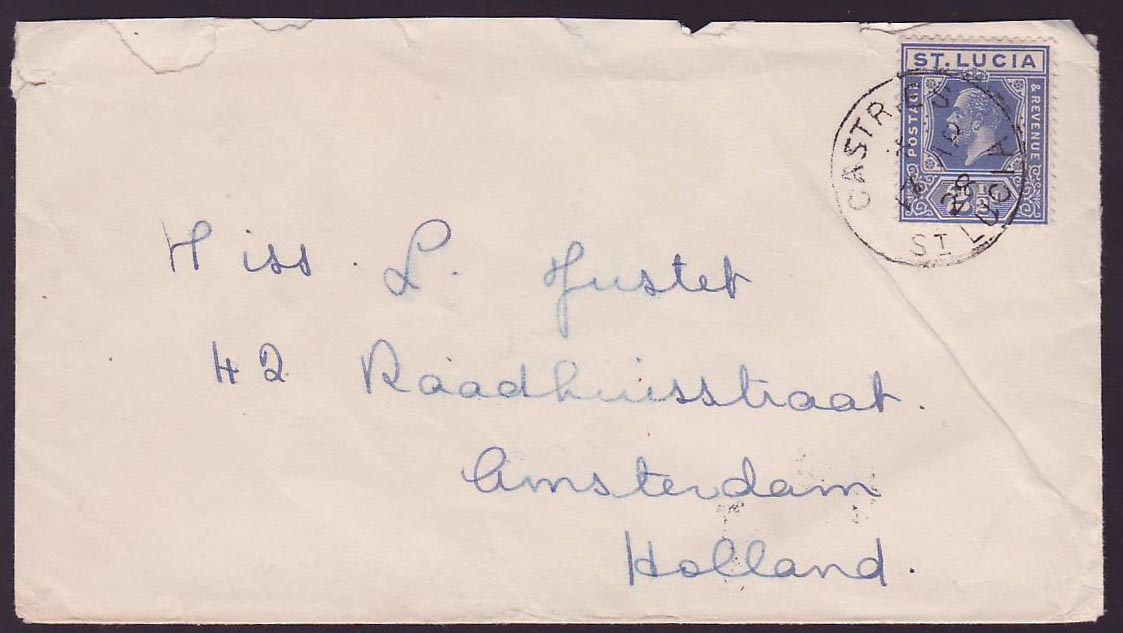 ST. LUCIA
POSTAGE & REVENUE
CASTRIES
ST LUCIA
Miss. L.
42 Raadhuisstraat.
Amsterdam
Holland.